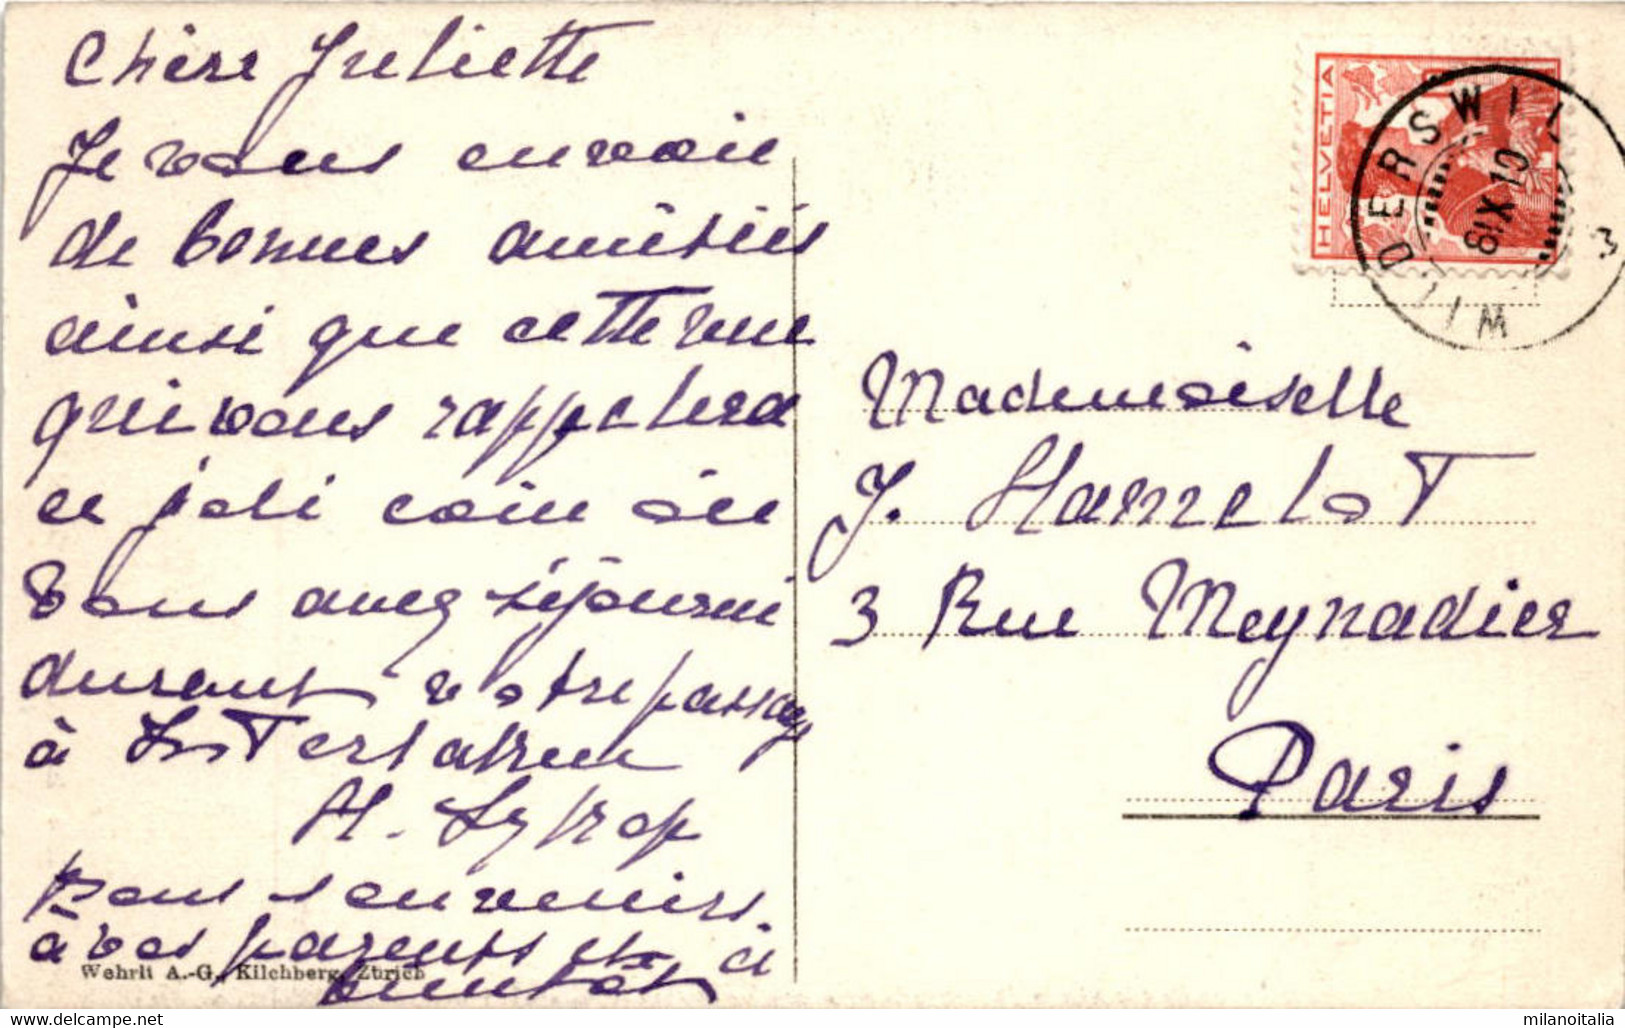 Chère Juliette
Je vous envoie
de bonnes amitiés
ainsi que cette vue
qui vous rappelera
ce joli coin où
vous avez séjourné
durant votre passage
à Interlaken
H.
bons souvenirs
à vos parents et à
bientôt
Wehrli A.-G., Kilchberg, Zürich
HELVETIA
WILDERSWIL
8 IX 10
3
Mademoiselle
J. Hamelot
3 Rue Meynadier
Paris
delcampe.net
milanoitalia